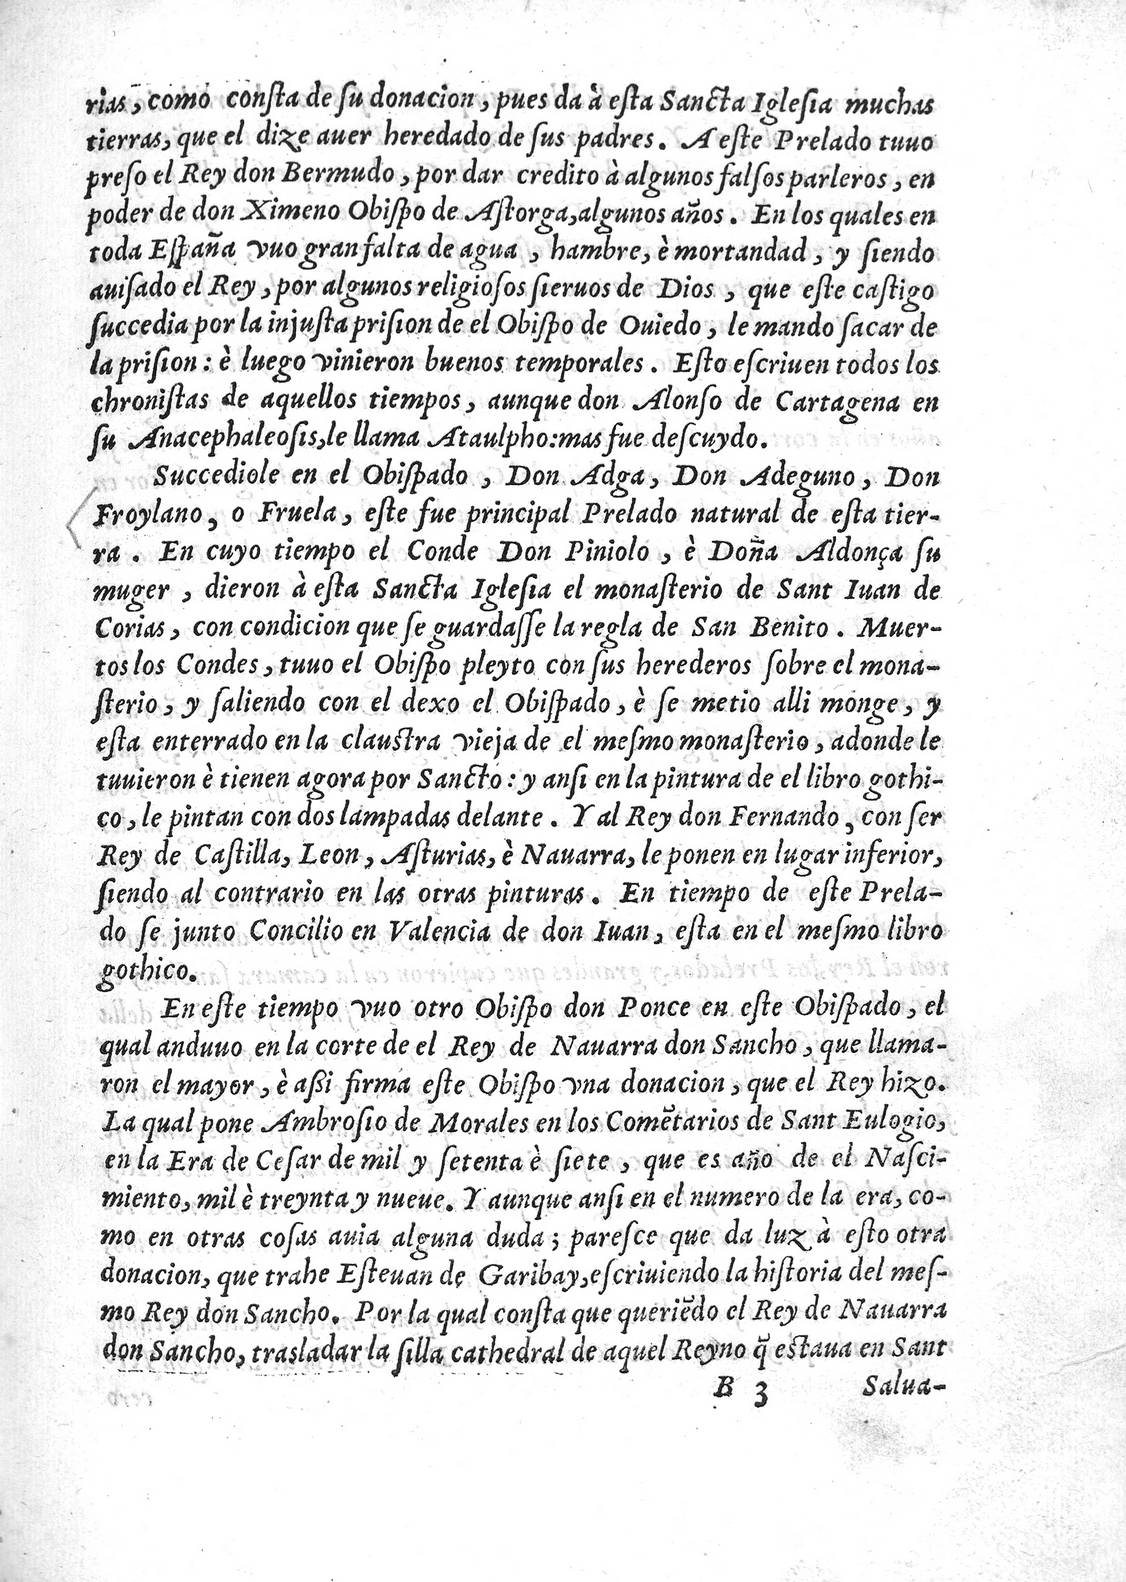 rias, como consta de su donacion, pues da à esta Sancta Iglesia muchas
tierras, que el dize auer heredado de sus padres. A este Prelado tuuo
preso el Rey don Bermudo, por dar credito à algunos falsos parleros, en
poder de don Ximeno Obispo de Astorga, algunos años. En los quales en
toda España vuo gran falta de agua, hambre, è mortandad, y siendo
auisado el Rey, por algunos religiosos sieruos de Dios, que este castigo
succedia por la injusta prision de el Obispo de Ouiedo, le mando sacar de
la prision: è luego vinieron buenos temporales. Esto escriuen todos los
chronistas de aquellos tiempos, aunque don Alonso de Cartagena en
su Anacephaleosis, le llama Ataulpho: mas fue descuydo.
Succediole en el Obispado, Don Adga, Don Adeguno, Don
Froylano, o Fruela, este fue principal Prelado natural de esta tier-
ra. En cuyo tiempo el Conde Don Piniolo, è Doña Aldonça su
muger, dieron à esta Sancta Iglesia el monasterio de Sant Iuan de
Corias, con condicion que se guardasse la regla de San Benito. Muer-
tos los Condes, tuuo el Obispo pleyto con sus herederos sobre el mona-
sterio, y saliendo con el dexo el Obispado, è se metio alli monge, y
esta enterrado en la claustra vieja de el mesmo monasterio, adonde le
tuuieron è tienen agora por Sancto: y ansi en la pintura de el libro gothi-
co, le pintan con dos lampadas delante. Y al Rey don Fernando, con ser
Rey de Castilla, Leon, Asturias, è Nauarra, le ponen en lugar inferior,
siendo al contrario en las otras pinturas. En tiempo de este Prela-
do se junto Concilio en Valencia de don Iuan, esta en el mesmo libro
gothico.
En este tiempo vuo otro Obispo don Ponce en este Obispado, el
qual anduuo en la corte de el Rey de Nauarra don Sancho, que llama-
ron el mayor, è assi firma este Obispo vna donacion, que el Rey hizo.
La qual pone Ambrosio de Morales en los Comẽtarios de Sant Eulogio,
en la Era de Cesar de mil y setenta è siete, que es año de el Nasci-
miento, mil è treynta y nueue. Y aunque ansi en el numero de la era, co-
mo en otras cosas auia alguna duda; paresce que da luz à esto otra
donacion, que trahe Esteuan de Garibay, escriuiendo la historia del mes-
mo Rey don Sancho. Por la qual consta que queriẽdo el Rey de Nauarra
don Sancho, trasladar la silla cathedral de aquel Reyno q̃ estaua en Sant
B 3 Salua-